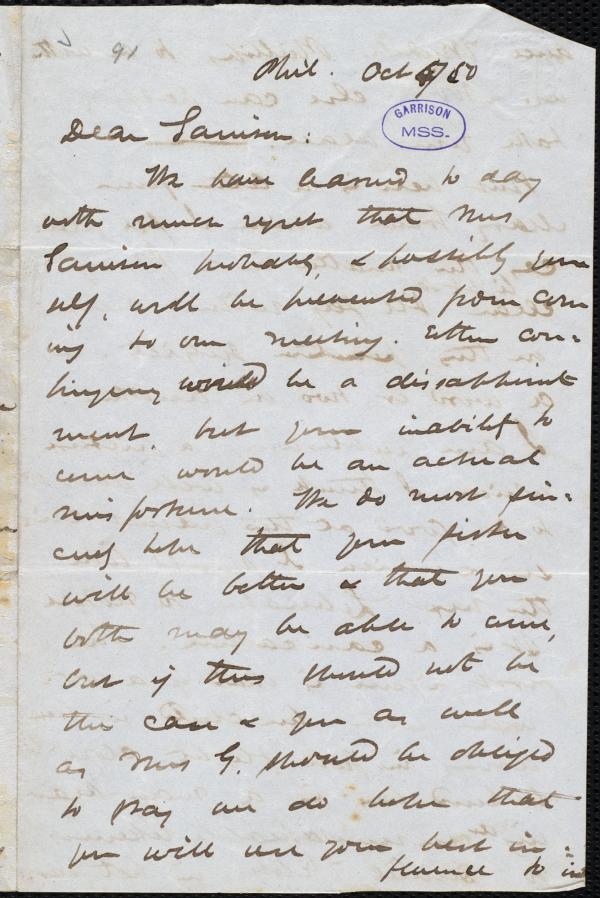 91
Phil. Oct 5/50
GARRISON
MSS.
Dear Garrison:
We have learned to day
with much regret that Mrs
Garrison probably, & possibly your
self, will be prevented from com
ing to our meeting. Either con=
tingency would be a disappoint
ment, but your inability to
come would be an actual
misfortune. We do most sin=
cerely hope that your sister
will be better & that you
both may be able to come,
but if this should not be
the case & you as well
as Mrs G. should be obliged
to stay we do hope that
you will use your best in=
fluence to in